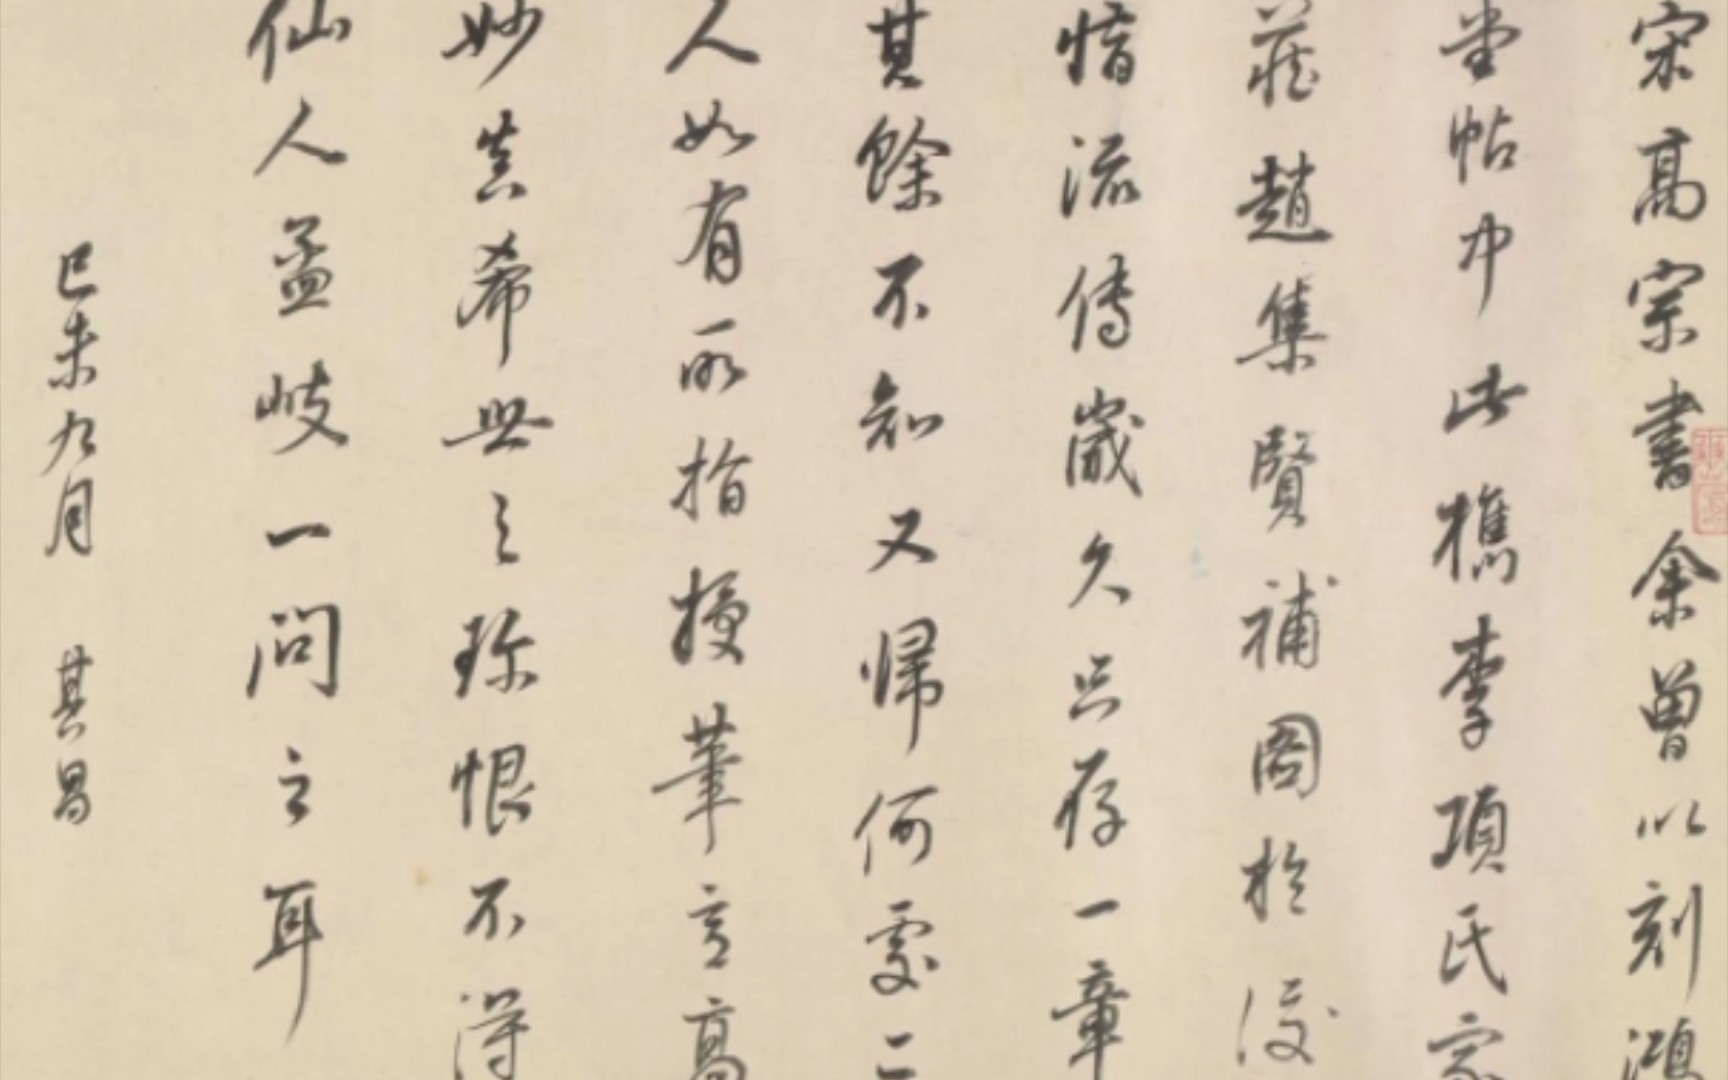 宋高宗書余曾以刻鴻
堂帖中此檇李項氏家
藏趙集賢補圖於後
惜流傳歲久只存一章
其餘不知又歸何處二
人如有所指授筆意高
妙真希世之珍恨不得
仙人孟岐一問之耳
己未九月 其昌